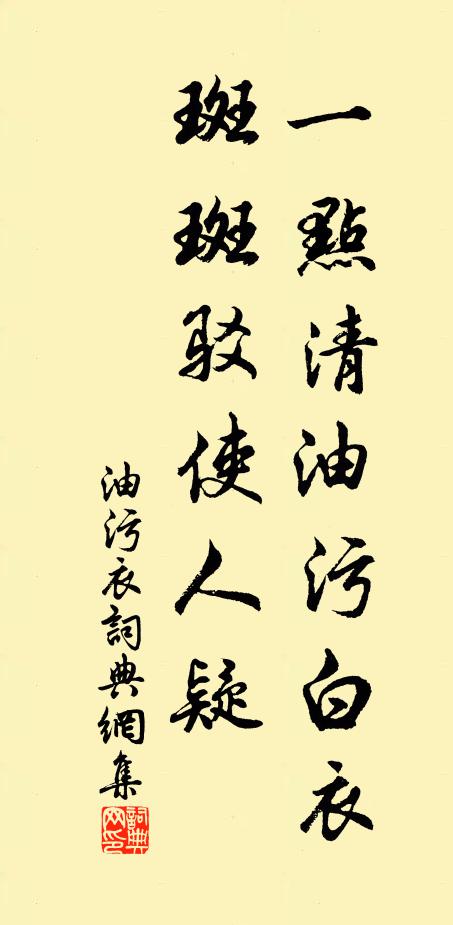 一點清油污白衣
斑斑驳使人疑
油污衣詞典網集
詞典网印